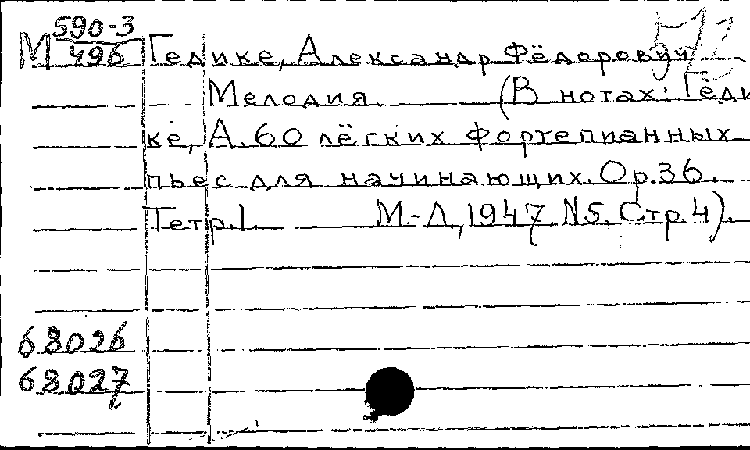 590-3
М 496 Гедике, Александр Фёдорович
Мелодия (В нотах: Гёди
ке, А. 60 лёгких фортепианных
пьес для начинающих. Op.36.
Тетр.1. М-Л, 1947 N5. Стр.4).
68026
68027